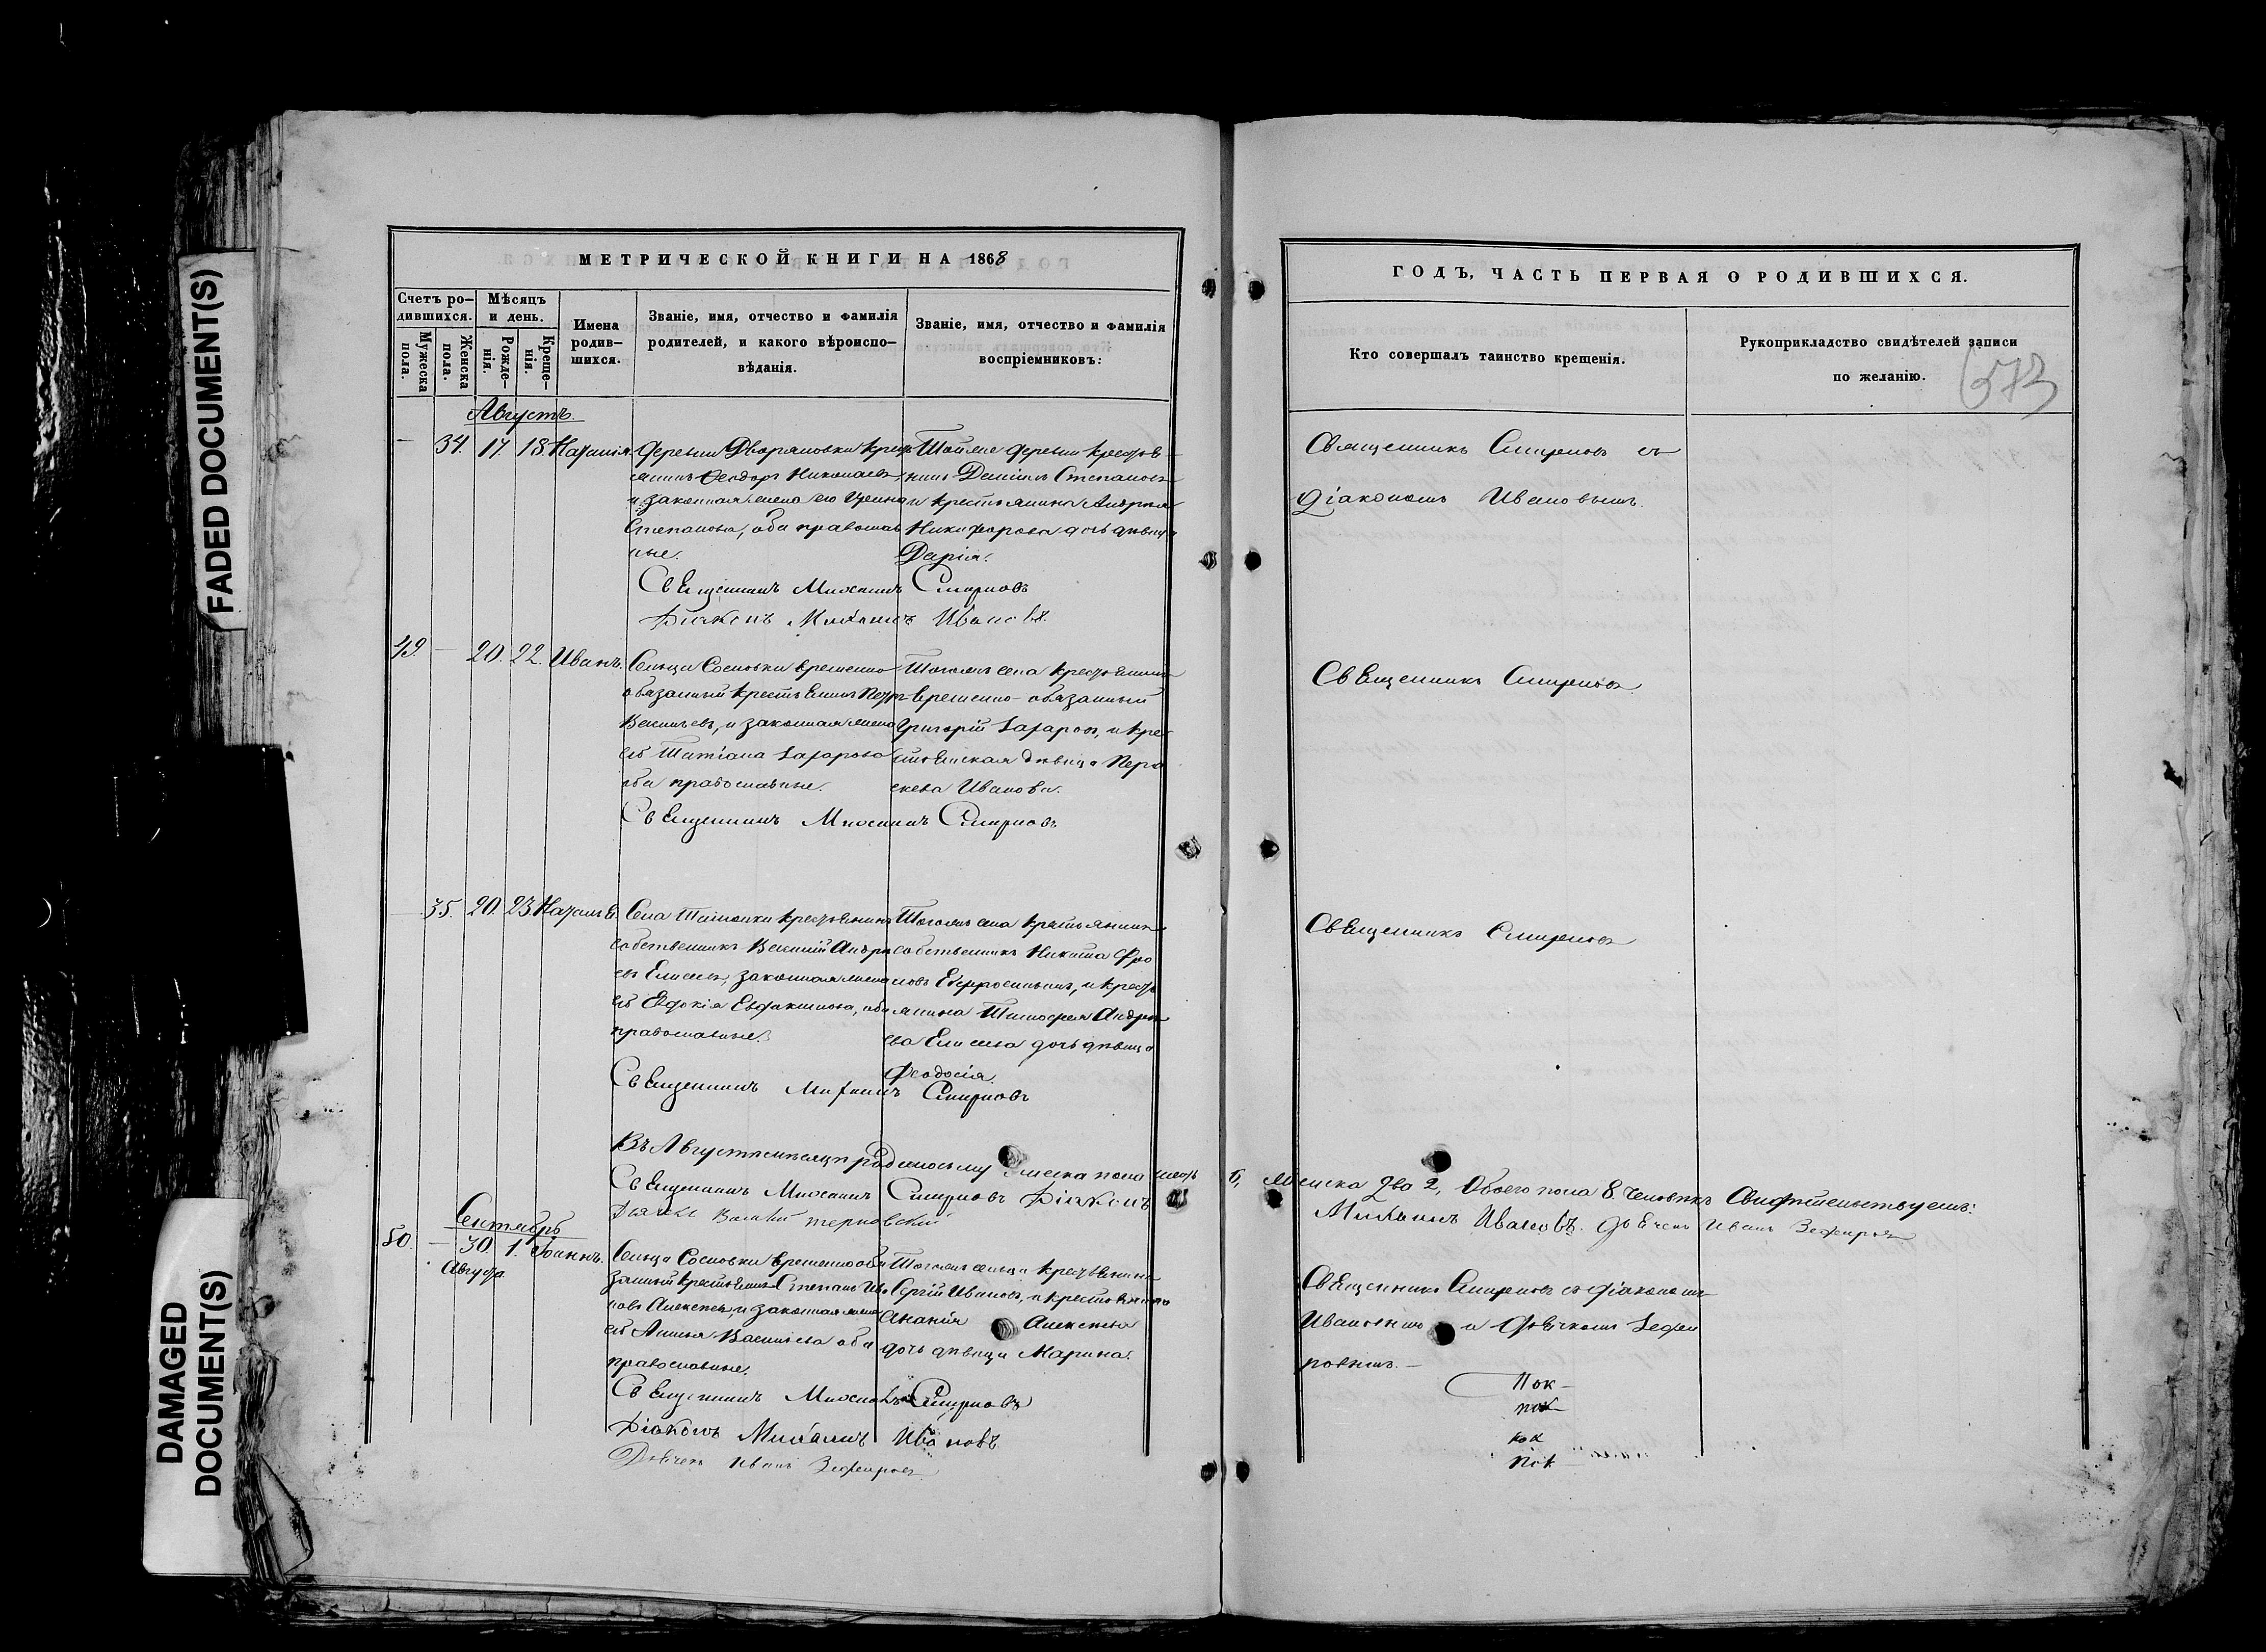 FADED DOCUMENT(S)
DAMAGED
DOCUMENT(S)
МЕТРИЧЕСКОЙ КНИГИ НА 1868
Счетъ ро-
дившихся.
Мужеска
пола.
Женска
пола.
Мѣсяцъ
и день.
Рожде-
нія.
Креще-
нія.
Имена
родив-
шихся.
Званіе, имя, отчество и фамилія
родителей, и какого вѣроиспо-
вѣданія.
Званіе, имя, отчество и фамилія
воспріемниковъ:
Августъ.
34. 17. 18. Наталія
Деревни Дворяновки крест
янинъ Феодоръ Николаевъ
и законная жена его
Степанова, оба православ
ные.
Тойже деревни крестья
нинъ Степановъ
и крестьянина
Никифорова дочь дѣвица
Дарія.
Священникъ Михаилъ Смирновъ
Діаконъ Михаилъ Ивановъ.
49. — 20. 22. Иванъ.
Сельца Сосновки временно
обязанный крестьянинъ Петръ
Васильевъ, и законная жена
его Татіана Захарова
оба православные.
Тогоже села крестьянинъ
временно-обязанный
Григорій Захаровъ, и кре
стьянская дѣвица Пара
скева Иванова.
Священникъ Михаилъ Смирновъ
35. 20. 23. Наталія.
Села крестьянинъ
собственникъ Василій Андре
евъ Елисеевъ, законная жена
его Евдокія Евдокимова, оба
православные.
Тогоже села крестьянинъ
собственникъ Никита Фро
ловъ и кресть
янина Тимофея Андре
ева Елисеева дочь дѣвица
Феодосія.
Священникъ Михаилъ Смирновъ
Въ Августѣ мѣсяцѣ родилось мужеска пола шесть 6, женска два 2, Обоего пола 8. человѣкъ Свидѣтельствуемъ:
Священникъ Михаилъ Смирновъ Діаконъ Михаилъ Ивановъ. Дьячекъ Иванъ Зефировъ
Сентябрь
50. — 30 1. Іоаннъ.
Августа
Сельца Сосновки временнообя
занный крестьянинъ Степанъ Ива
новъ Алексеевъ, и законная жена
его Анна Васильева оба
православные.
Тогоже сельца крестьянинъ
Сергій Ивановъ, и крестьянина
Ананія Алексеева
дочь дѣвица Марина.
Священникъ Михаилъ Смирновъ
Діаконъ Михаилъ Ивановъ
Дьячекъ Иванъ Зефировъ
ГОДЪ, ЧАСТЬ ПЕРВАЯ О РОДИВШИХСЯ.
Кто совершалъ таинство крещенія.
Рукоприкладство свидѣтелей записи
по желанію.
573
Священникъ Смирновъ съ
Діакономъ Ивановымъ.
Священникъ Смирновъ.
Священникъ Смирновъ
Священникъ Смирновъ съ діакономъ
Ивановымъ и дьячкомъ Зефи
ровымъ.—